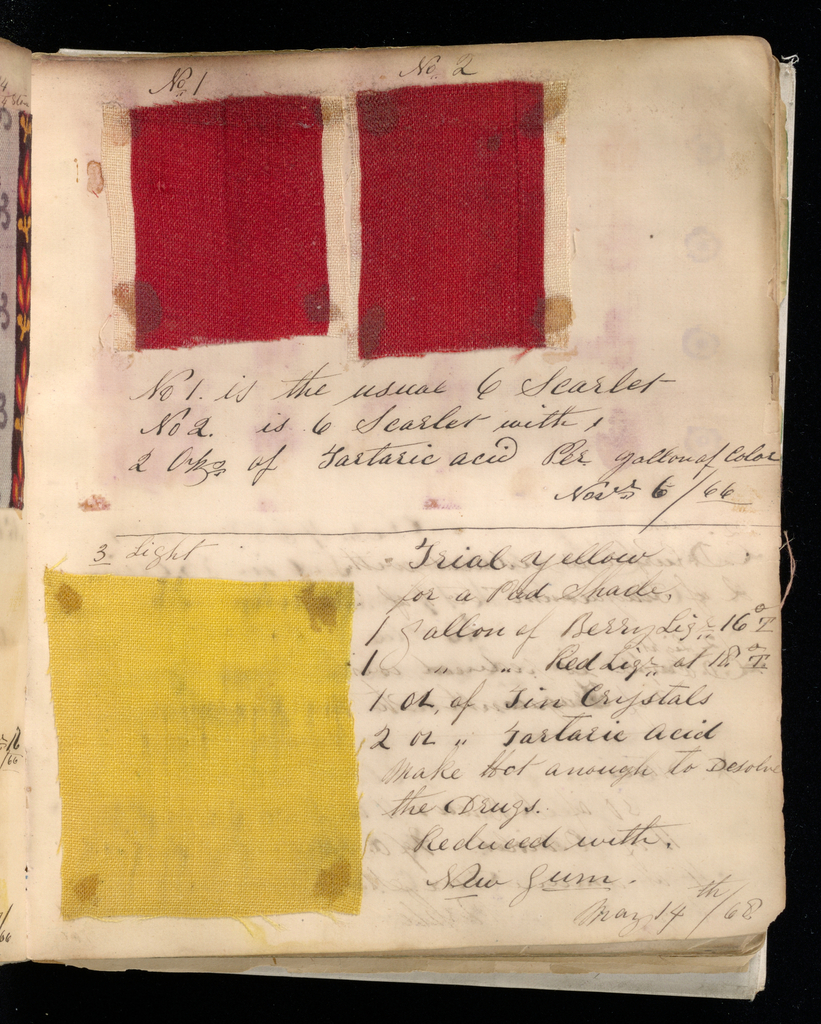 No 1
No 2
No 1. is the usual 6 Scarlet
No 2. is 6 Scarlet with
2 of Tartaric acid Per gallon of Color
6/66
3 Light
Trial yellow
for a Red Shade,
1 gallon of Berry Liq 16 T
1 " " Red Liq at 18 T
1 oz, of Tin Crystals
2 oz " Tartaric Acid
Make Hot anough to Desolve
the Drugs.
Reduced with.
New Gum.
May 14th/68